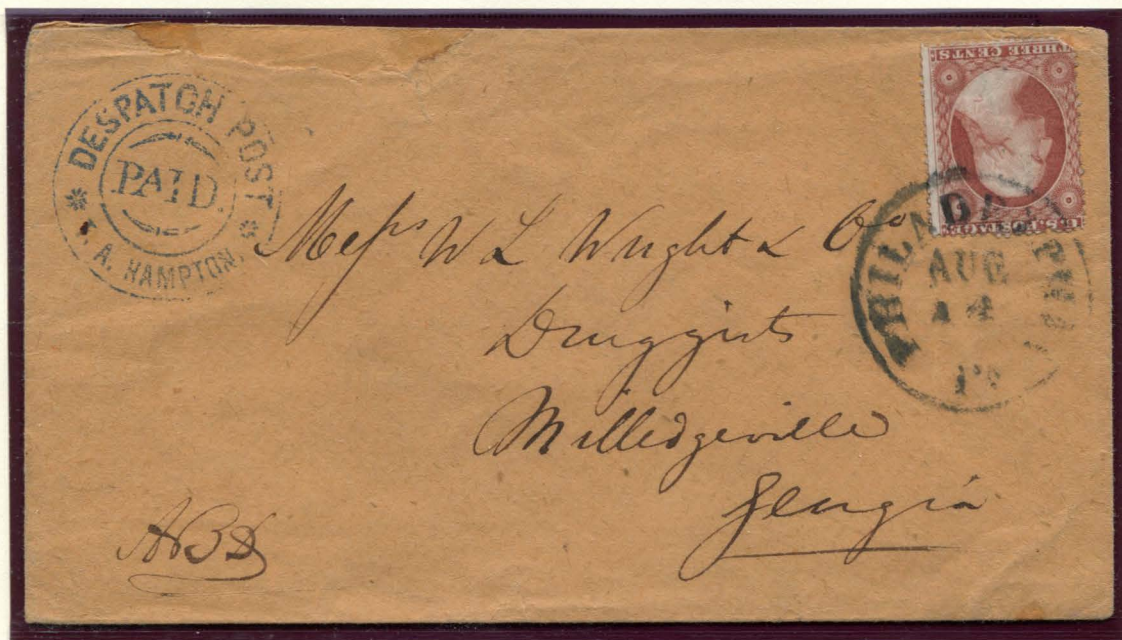 DESPATCH POST
PAID
T. A. HAMPTON.
THREE CENTS
U.S. POSTAGE
PHILADELPHIA
AUG
14
Pa
Messrs W L Wright & Co
Druggists
Milledgeville
Georgia